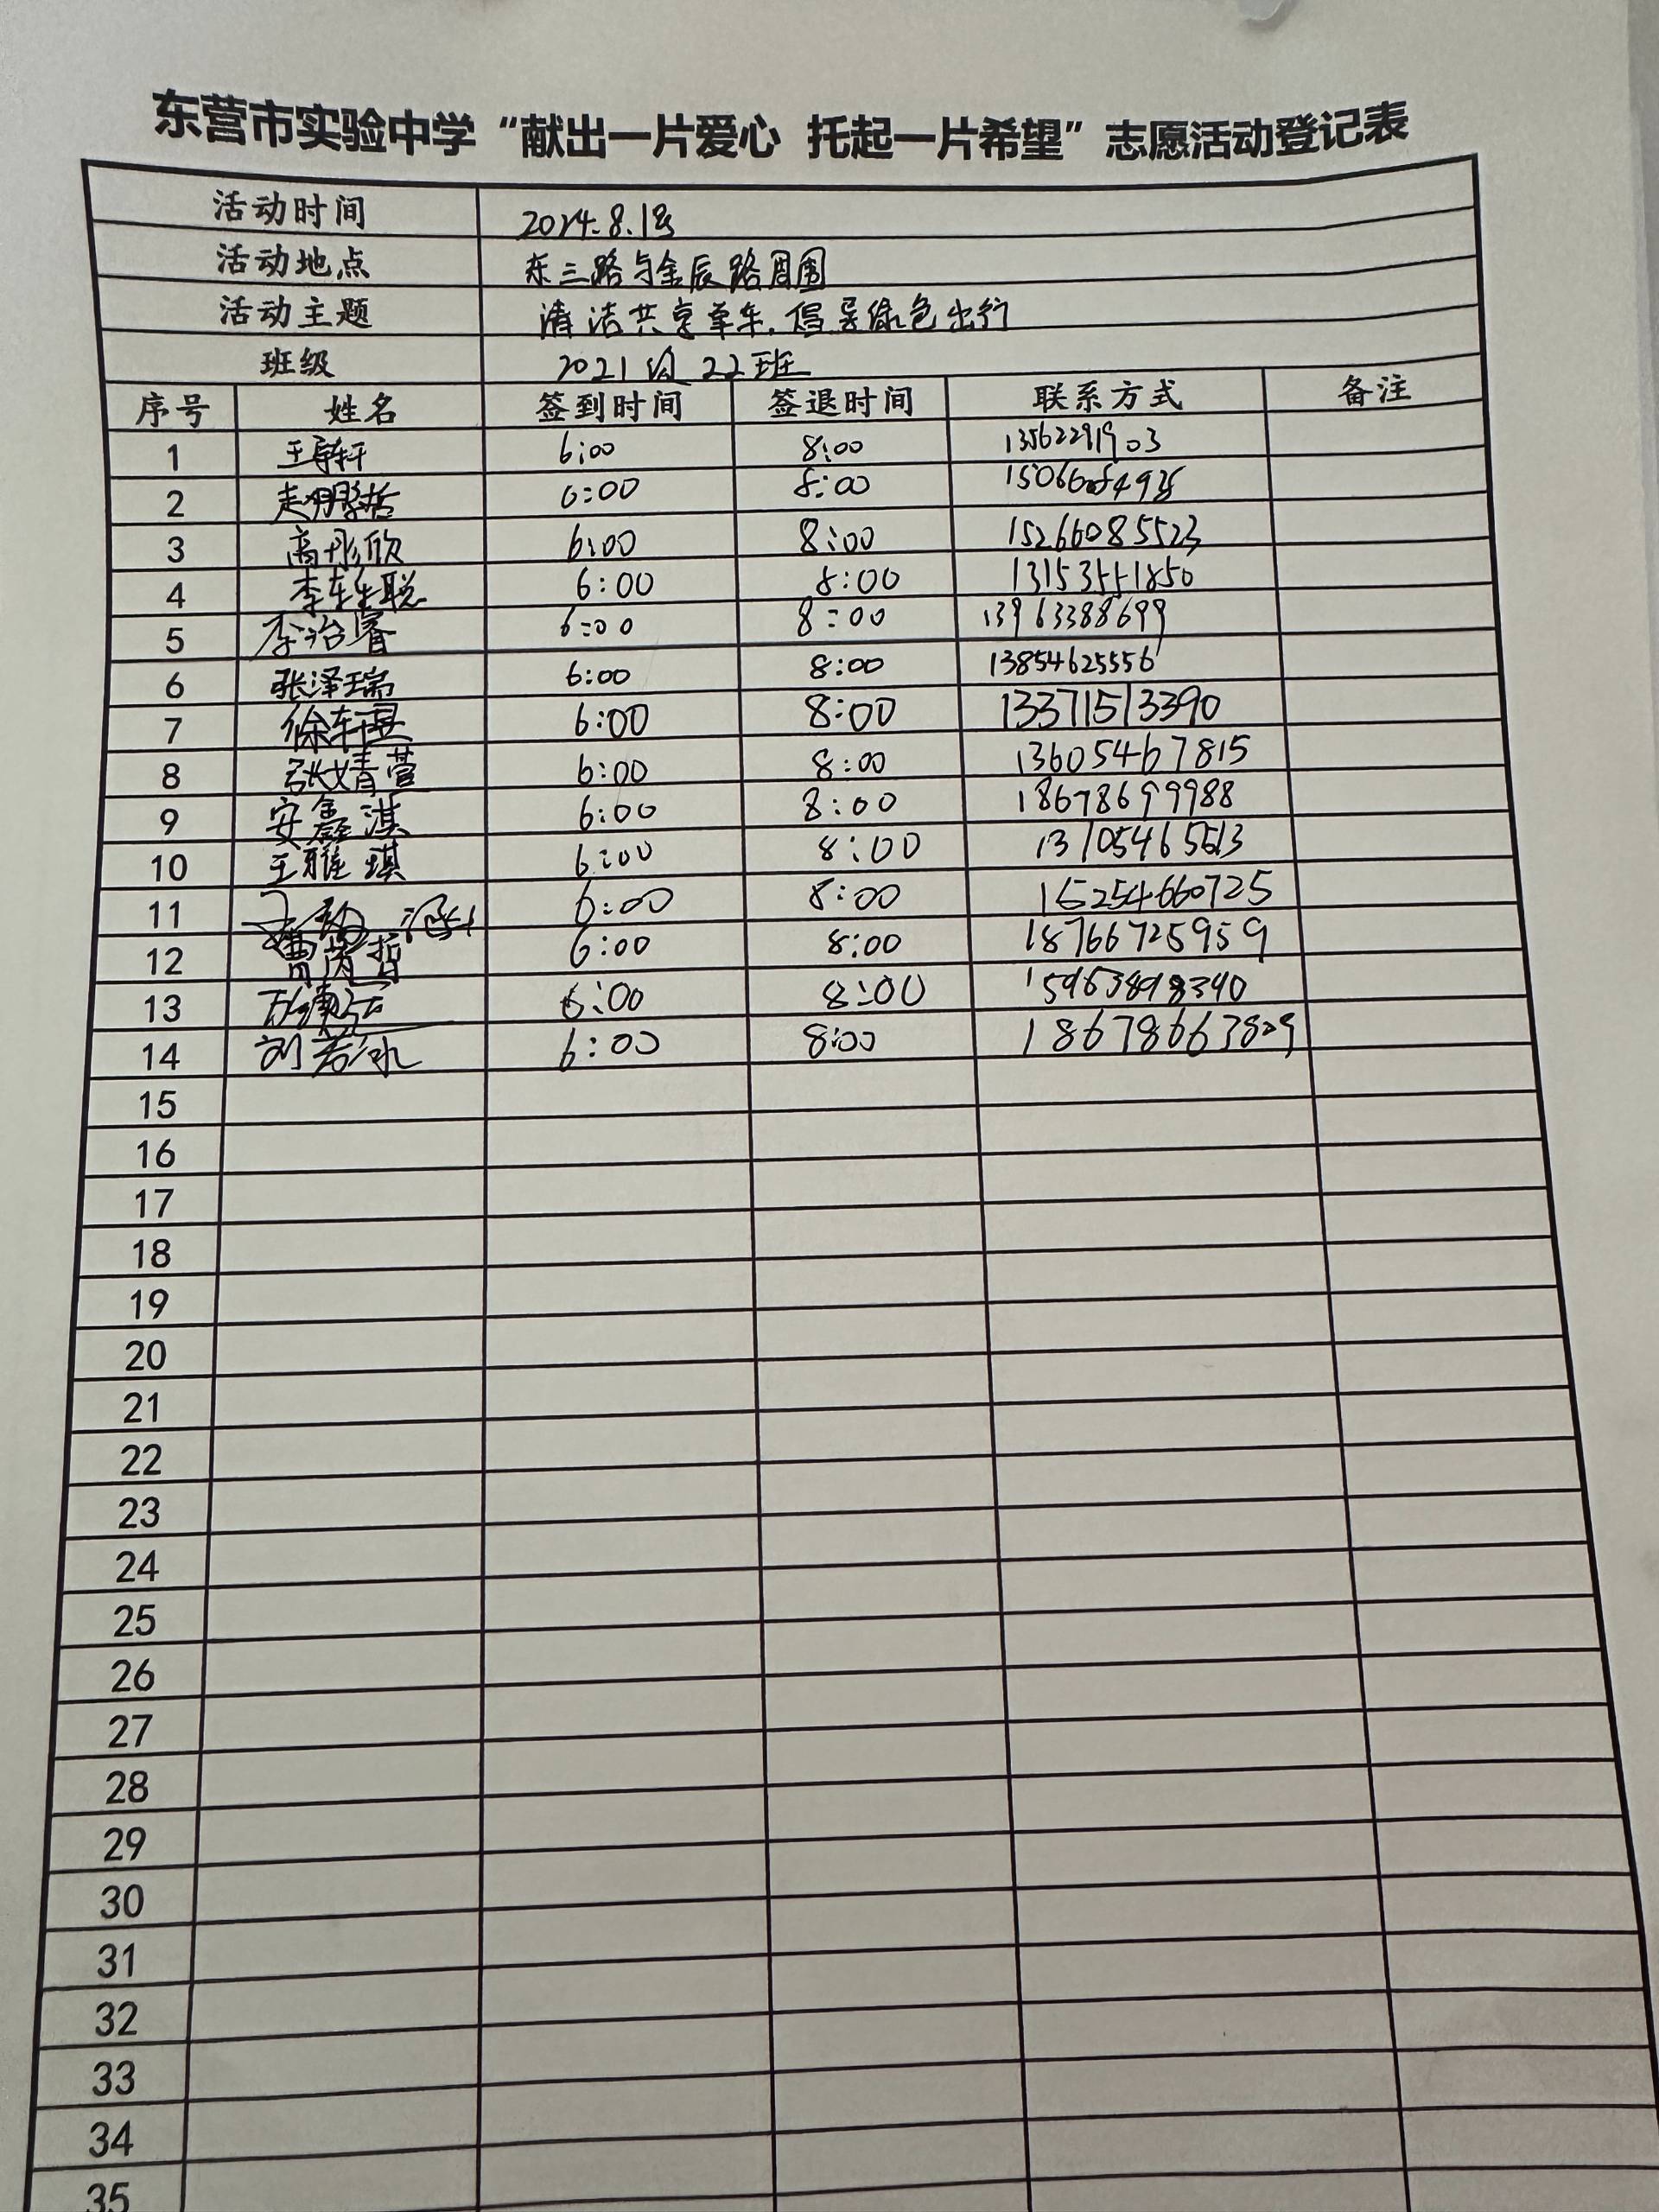 东营市实验中学“献出一片爱心 托起一片希望”志愿活动登记表
活动时间 2024.8.18
活动地点 东三路与金辰路周围
活动主题 清洁共享单车,倡导绿色出行
班级 2021级 22班
序号 姓名 签到时间 签退时间 联系方式 备注
1 6:00 8:00 13562291903
2 6:00 8:00
3 高彤欣 6:00 8:00 15266085523
4 6:00 8:00 13153551850
5 李治睿 6:00 8:00 13963388699
6 张泽瑞 6:00 8:00 13854625556
7 6:00 8:00 13371513390
8 张婧萱 6:00 8:00 13605467815
9 安鑫淇 6:00 8:00 18678699988
10 王雅琪 6:00 8:00
11 6:00 8:00 15254660725
12 6:00 8:00 18766725959
13 6:00 8:00 15963898340
14 6:00 8:00
15
16
17
18
19
20
21
22
23
24
25
26
27
28
29
30
31
32
33
34
35